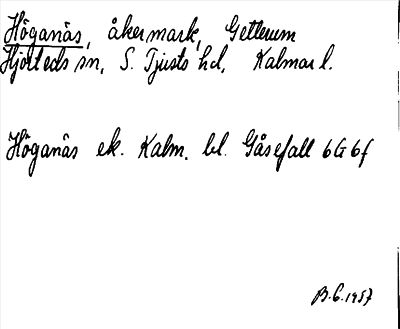 Höganäs, åkermark, Getterum
Hjorteds sn, S. Tjusts hd, Kalmar l.
Höganäs ek. Kalm. bl. Gåsefall 6G6f
B.G. 1957